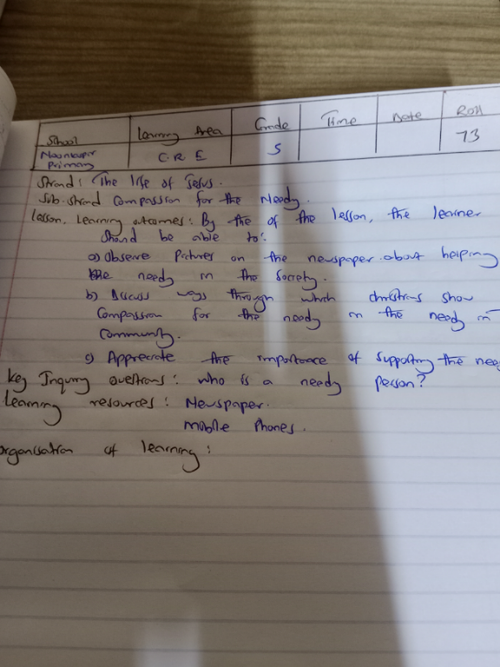 School Learning Area Grade Time Date Roll
Primary C.R.E 5 73
Strand: The life of Jesus.
Sub-strand Compassion for the Needy.
Lesson Learning outcomes: By the of the lesson, the learner
should be able to:
a) Observe Pictures on the newspaper about helping
the needy in the society.
b) Discuss ways through which christians show
Compassion for the needy in the needy in
Community.
c) Appreciate the importance of supporting the
Key Inquiry questions: who is a needy person?
Learning resources: Newspaper.
Mobile Phones.
organisation of learning: